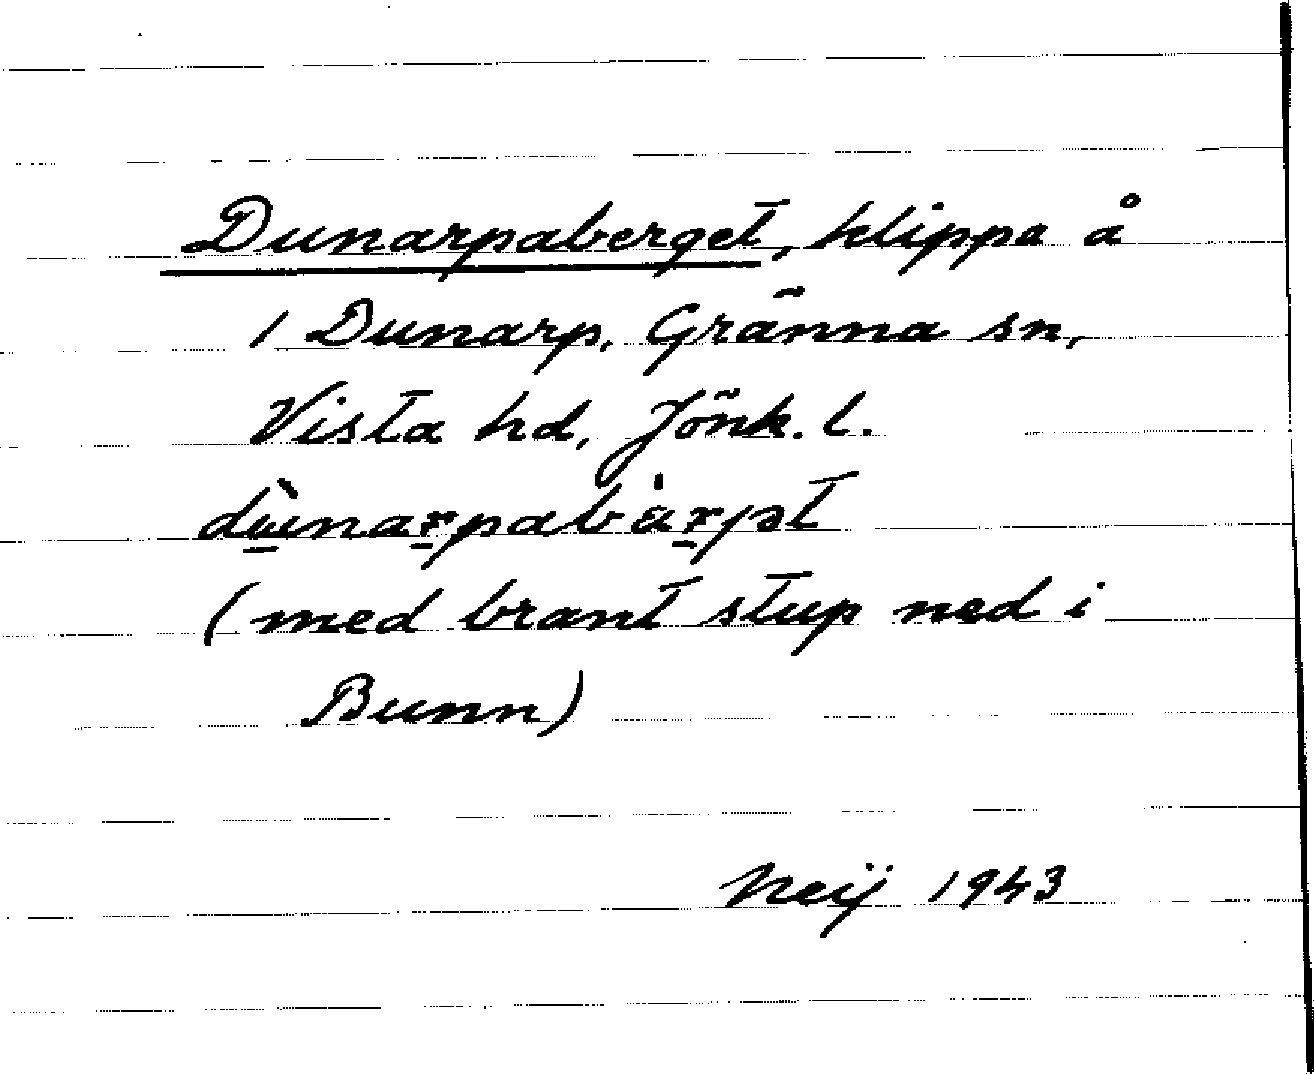 Dunarpaberget, klippa å
1 Dunarp, Gränna sn,
Vista hd, Jönk. l.
(med brant stup ned i
Bunn)
Neij 1943